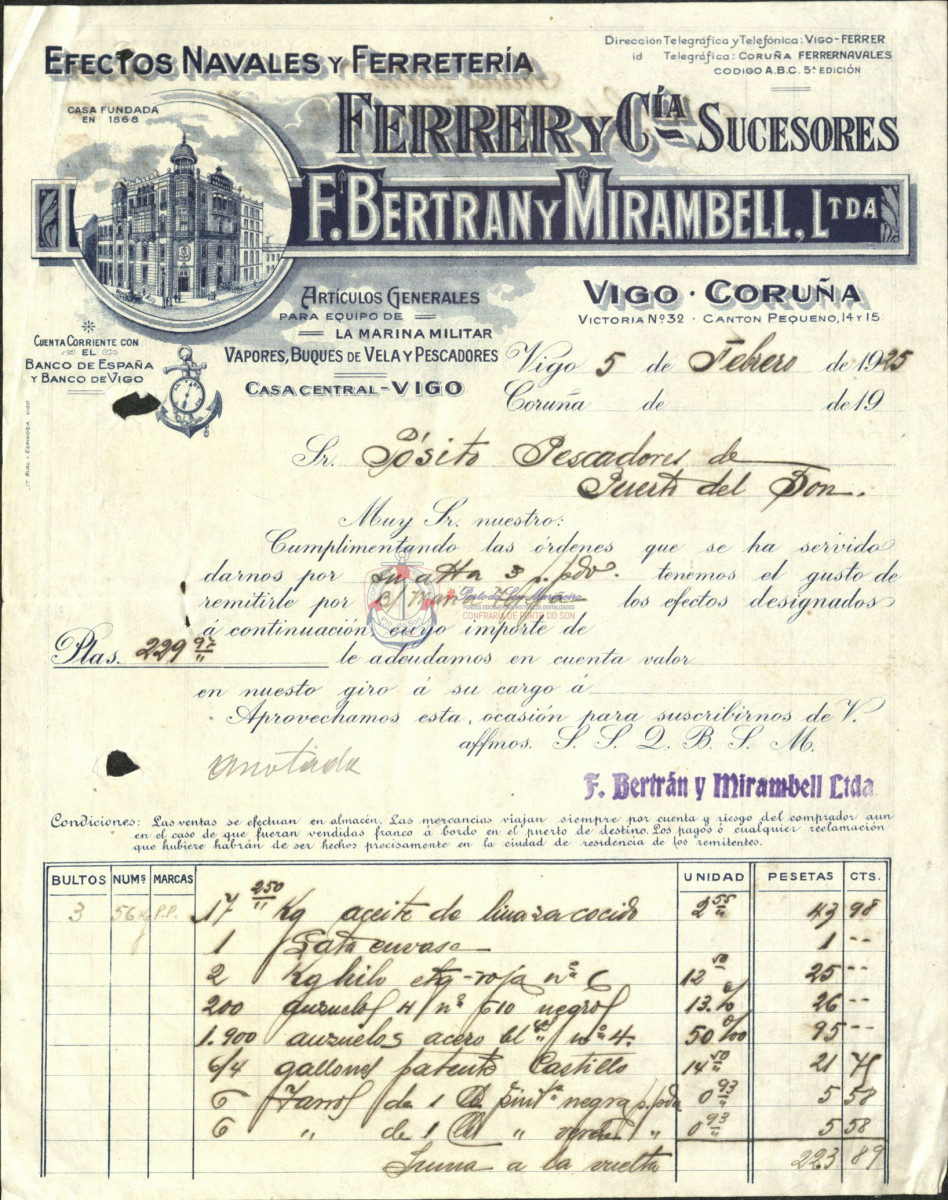 EFECTOS NAVALES Y FERRETERÍA
Dirección Telegráfica y Telefónica: VIGO-FERRER
id Telegráfica: CORUÑA FERRERNAVALES
CODIGO A.B.C. 5ª EDICIÓN
CASA FUNDADA
EN 1868
FERRER Y CÍA SUCESORES
F. BERTRAN Y MIRAMBELL, LTDA
ARTÍCULOS GENERALES
PARA EQUIPO DE
LA MARINA MILITAR
VAPORES, BUQUES DE VELA Y PESCADORES
CASA CENTRAL-VIGO
VIGO · CORUÑA
VICTORIA Nº 32 · CANTON PEQUEÑO, 14 Y 15
CUENTA CORRIENTE CON
EL
BANCO DE ESPAÑA
Y BANCO DE VIGO
Vigo 5 de Febrero de 1925
Coruña de de 19
Sr. Pósito Pescadores de
Puerto del Son.
Muy Sr. nuestro:
Cumplimentando las órdenes que se ha servido
darnos por su atta 3 p. pdo. tenemos el gusto de
remitirle por los efectos designados
Porto do Son Mariñeiro
CONFRARÍA DE PORTO DO SON
á continuación cuyo importe de
Ptas. 229 97 le adeudamos en cuenta valor
en nuesto giro á su cargo á
Aprovechamos esta ocasión para suscribirnos de V.
affmos. S. S. Q. B. S. M.
anotada
F. Bertrán y Mirambell Ltda
Condiciones: Las ventas se efectuan en almacén. Las mercancias viajan siempre por cuenta y riesgo del comprador aun
en el caso de que fueran vendidas franco á bordo en el puerto de destino. Los pagos ó cualquier reclamación
que hubiere habrán de ser hechos precisamente en la ciudad de residencia de los remitentes.
BULTOS NUMS MARCAS UNIDAD PESETAS CTS.
3 56 kg P.P. 17 250 Kg aceite de linaza cocido 2 55 43 98
1 Lata envase 1 --
2 Kg hilo etq-roja nº 6 12 50 25 --
200 anzuelos nº 610 negros 13. % 26 --
1.900 anzuelos acero nº 4 50 %00 95 --
6/4 gallones patente Castillo 14 50 21 75
6 Tarros de 1 pintª negra p. pdo 0 93 5 58
6 " de 1 " verde " 0 93 5 58
Suma a la vuelta 223 89